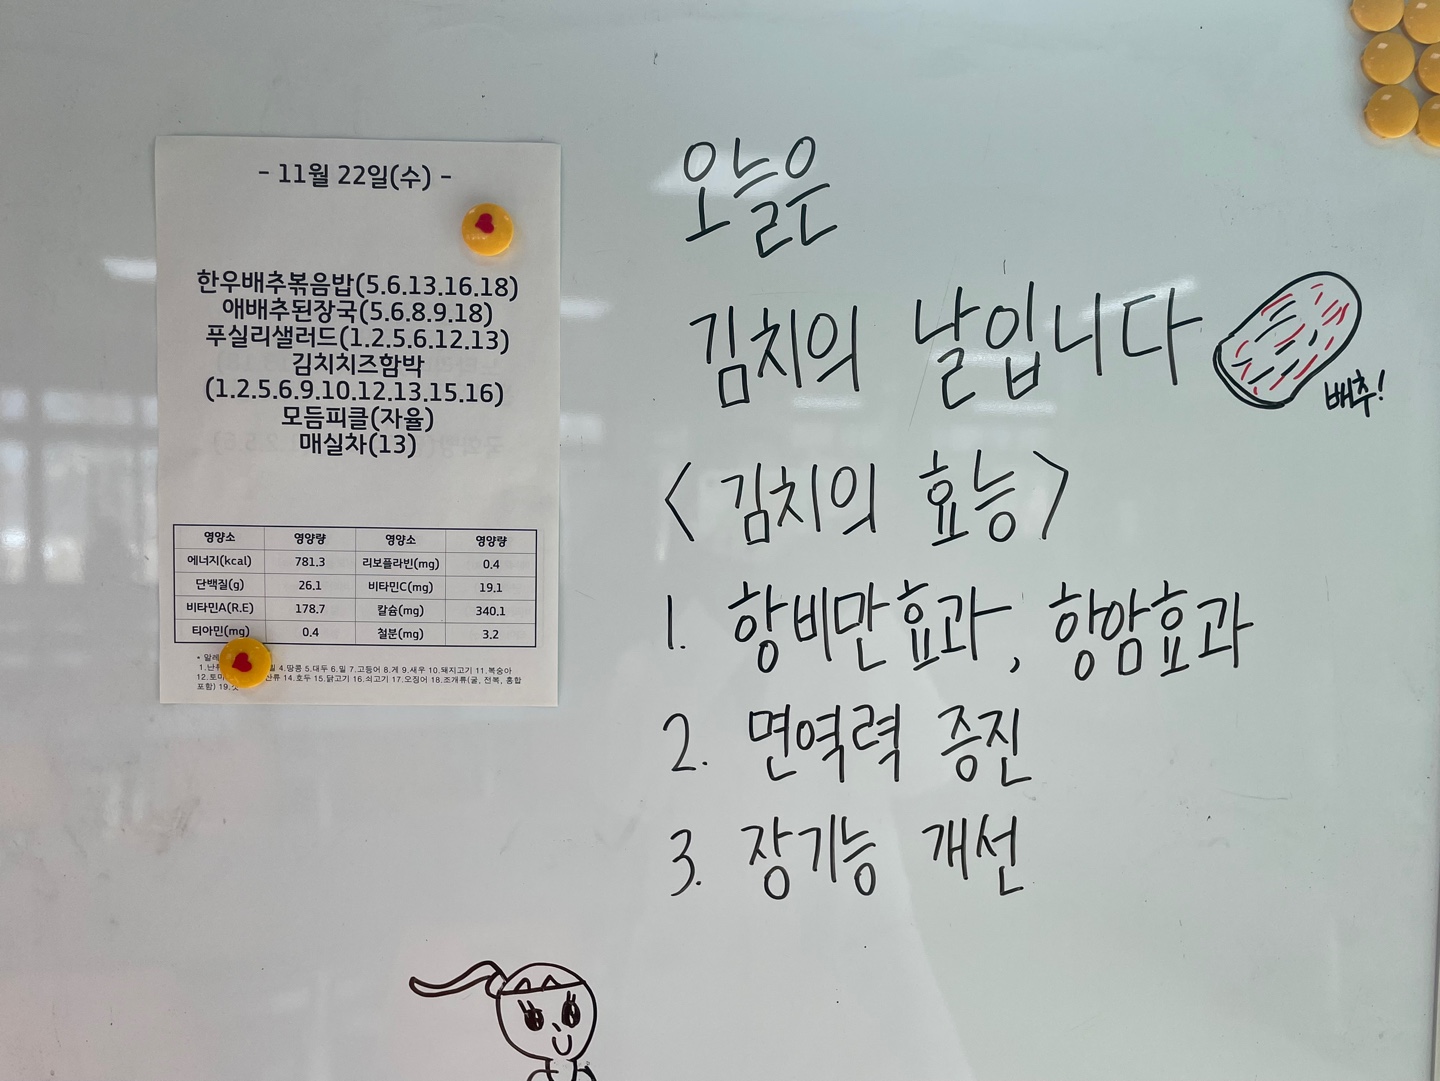 - 11월 22일(수) -
한우배추볶음밥(5.6.13.16.18)
얘배추된장국(5.6.8.9.18)
푸실리샐러드(1.2.5.6.12.13)
김치치즈함박
(1.2.5.6.9.10.12.13.15.16)
모듬피클(자율)
매실차(13)
영양소 영양량 영양소 영양량
에너지(kcal) 781.3 리보플라빈(mg) 0.4
단백질(g) 26.1 비타민C(mg) 19.1
비타민A(R.E) 178.7 칼슘(mg) 340.1
티아민(mg) 0.4 철분(mg) 3.2
1.난류 4.땅콩 5.대두 6.밀 7.고등어 8.게 9.새우 10.돼지고기 11.복숭아
14.호두 15.닭고기 16.쇠고기 17.오징어 18.조개류(굴, 전복, 홍합
포함) 19.
오늘은
김치의 날입니다
배추!
<김치의 효능>
1. 항비만효과, 항암효과
2. 면역력 증진
3. 장기능 개선